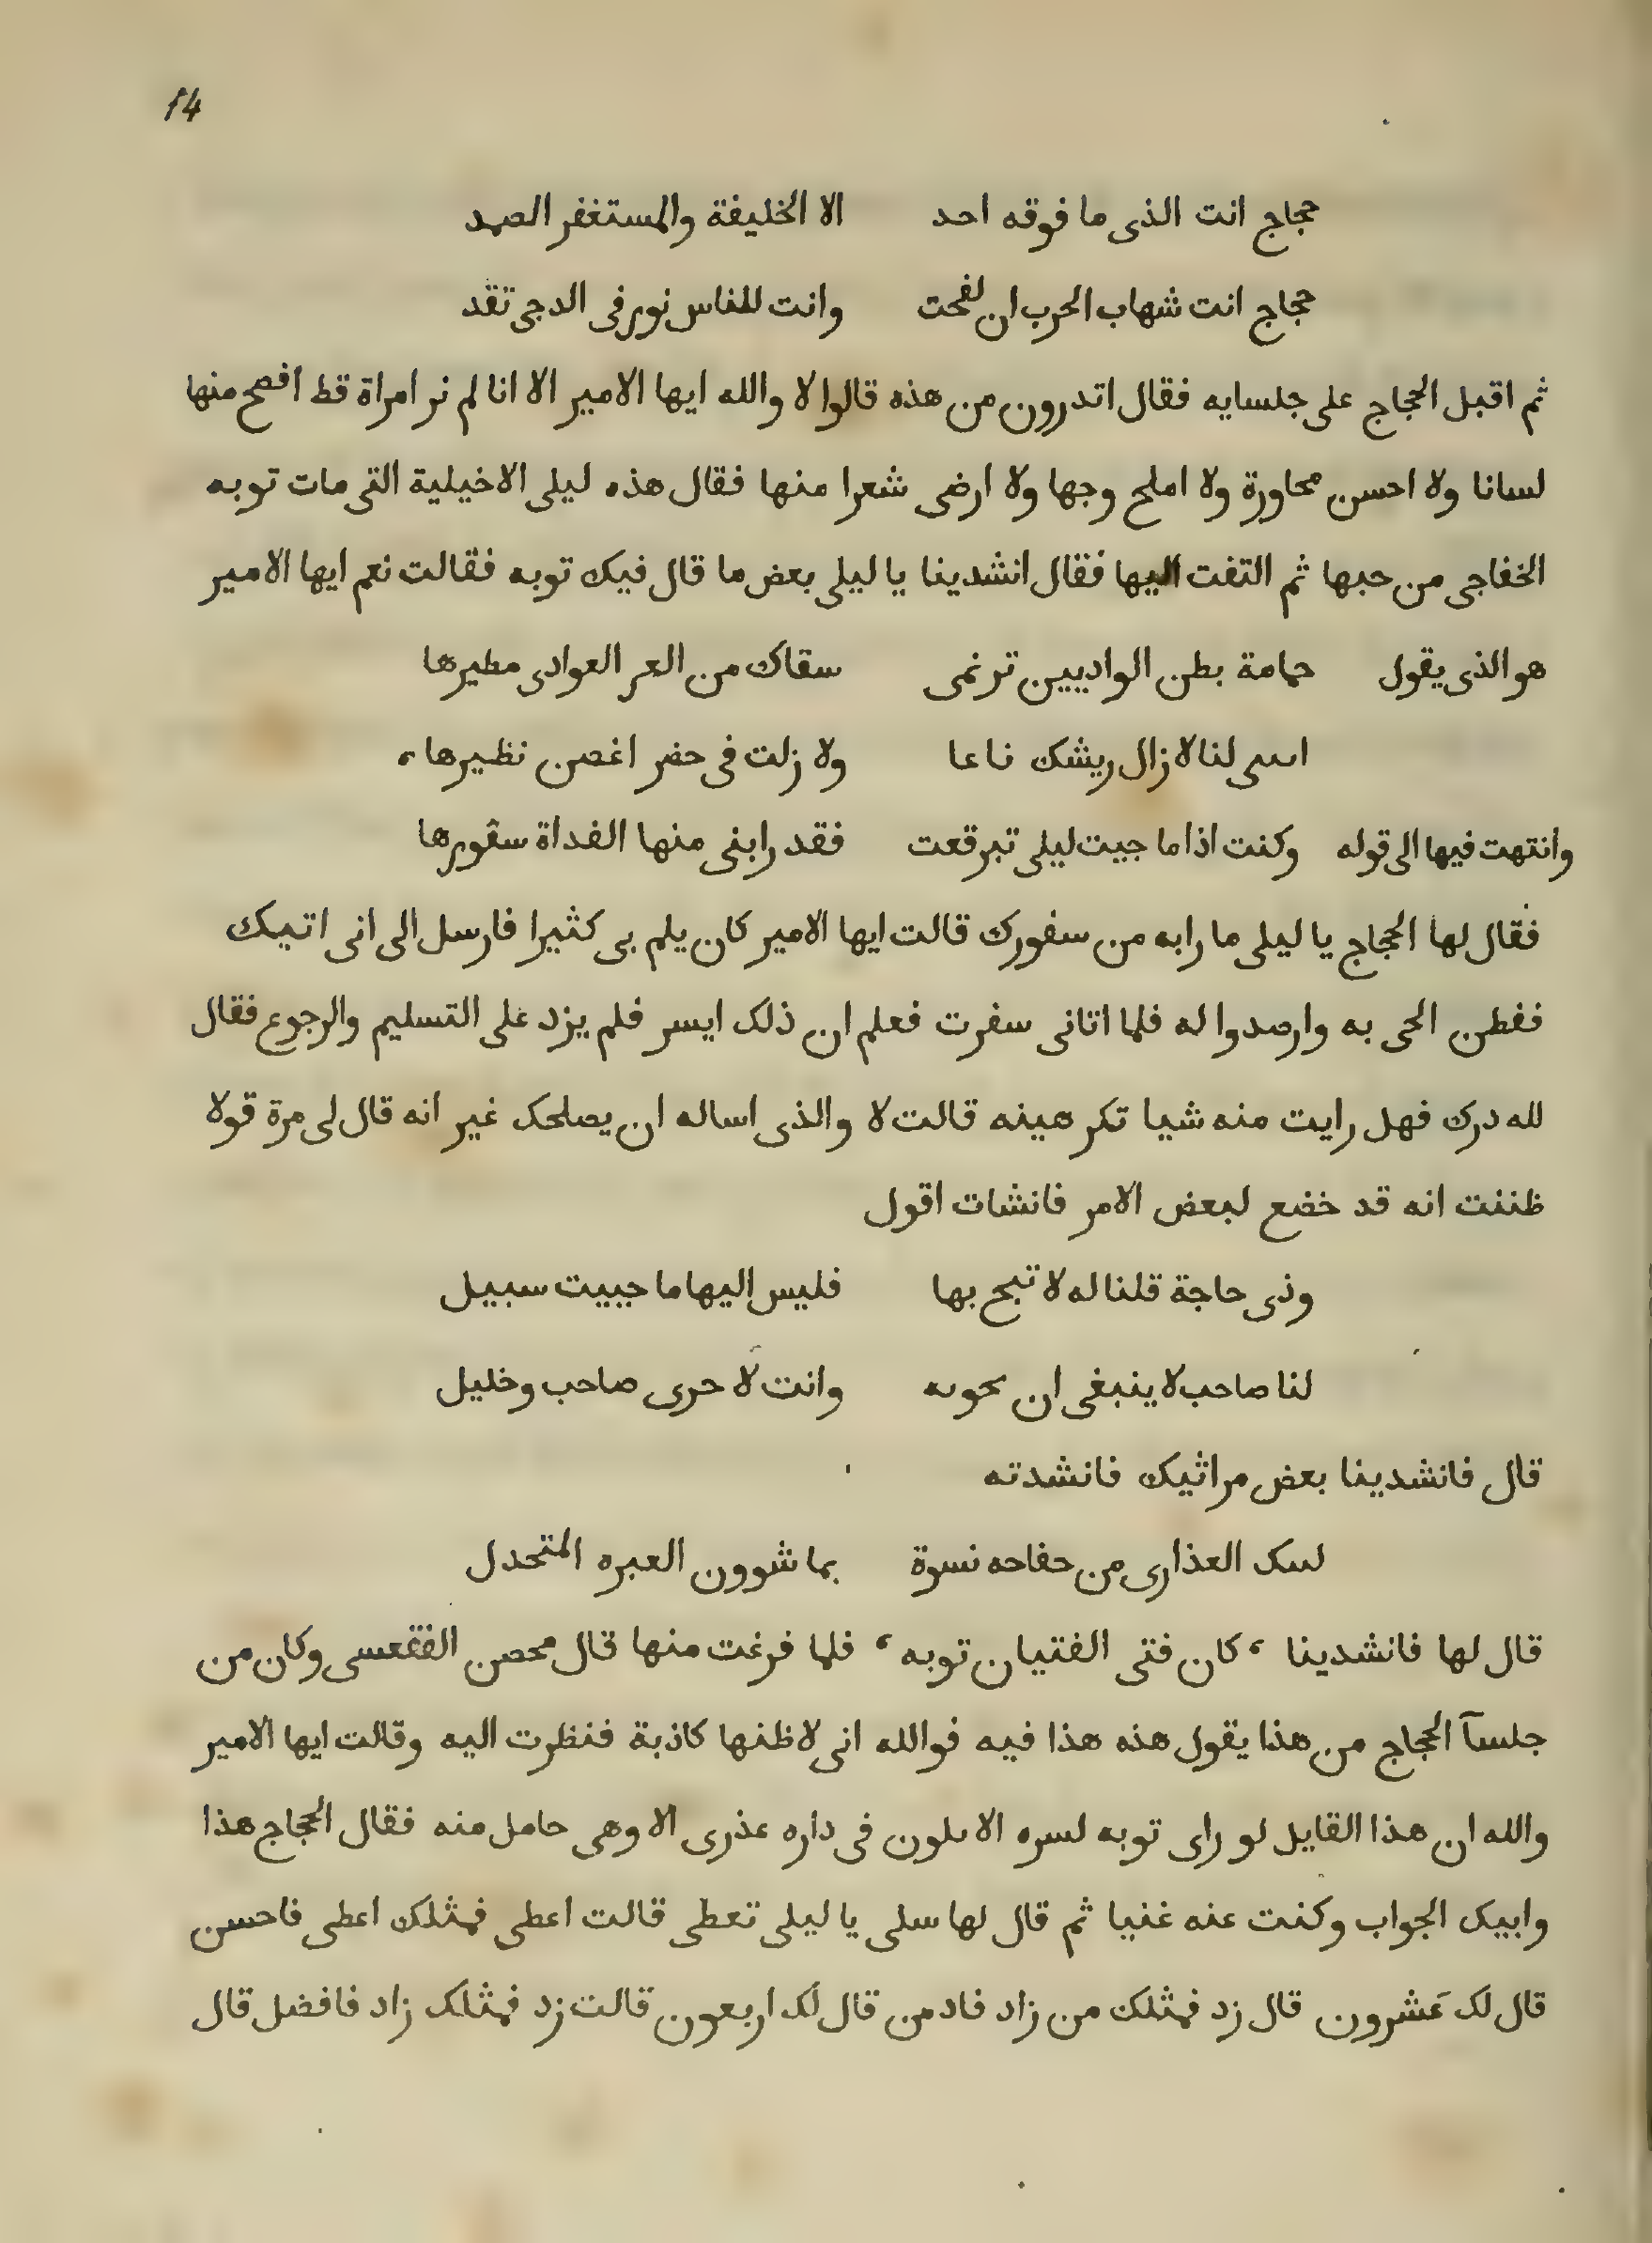 14
حجاج انت الذى ما فوقه احد الا الخليفة والمستغفر الصمد
حجاج انت شهاب الحرب ان لفحت وانت للناس نور فى الدجى تقد
ثم اقبل الحجاج على جلسايه فقال اتدرون من هذه قالوا لا والله ايها الامير الا انا لم نر امراة قط افصح منها
لسانا ولا احسن محاورة ولا املح وجها ولا ارضى شعرا منها فقال هذه ليلى الاخيلية التى مات توبه
الخفاجى من حبها ثم التفت اليها فقال انشدينا يا ليلى بعض ما قال فيك توبه فقالت نعم ايها الامير
هو الذى يقول حمامة بطن الواديين ترنمى سقاك من العر العوادى مطيرها
لنا لا زال ريشك ناعا ولا زلت فى حضر اغصن نظيرها
وانتهت فيها الى قوله وكنت اذا ما جيت ليلى تبرقعت فقد رابنى منها الغداة سفورها
فقال لها الحجاج يا ليلى ما رابه من سفورك قالت ايها الامير كان يلم بى كثيرا فارسل الى انى اتيك
ففطن الحى به وارصدوا له فلما اتانى سفرت فعلم ان ذلك ايسر فلم يزد على التسليم والرجوع فقال
لله درك فهل رايت منه شيا تكرهينه قالت لا والذى اساله ان يصلحك غير انه قال لى مرة قولا
ظننت انه قد خضع لبعض الامر فانشات اقول
وذى حاجة قلنا له لا تبح بها فليس اليها ما حييت سبيل
لنا صاحب لا ينبغى ان وانت لا حرى صاحب وخليل
قال فانشدينا بعض مراثيك فانشدته
العذارى من نسوة بما شوون العبره المتحدل
قال لها فانشدينا ، كان فتى الفتيان توبه ، فلما فرغت منها قال محصن الفقعسى وكان من
جلسآ الحجاج من هذا يقول هذه هذا فيه فوالله انى لاظنها كاذبة فنظرت اليه وقالت ايها الامير
والله ان هذا القايل لو راى توبه لسره الا ىلون فى داره عذرى الا وهى حامل منه فقال الحجاج هذا
وابيك الجواب وكنت عنه غنيا ثم قال لها سلى يا ليلى تعطى قالت اعطى فمثلك اعطى فاحسن
قال لك عشرون قال زد فمثلك من زاد فادمن قال لك اربعون قالت زد فمثلك زاد فافضل قال